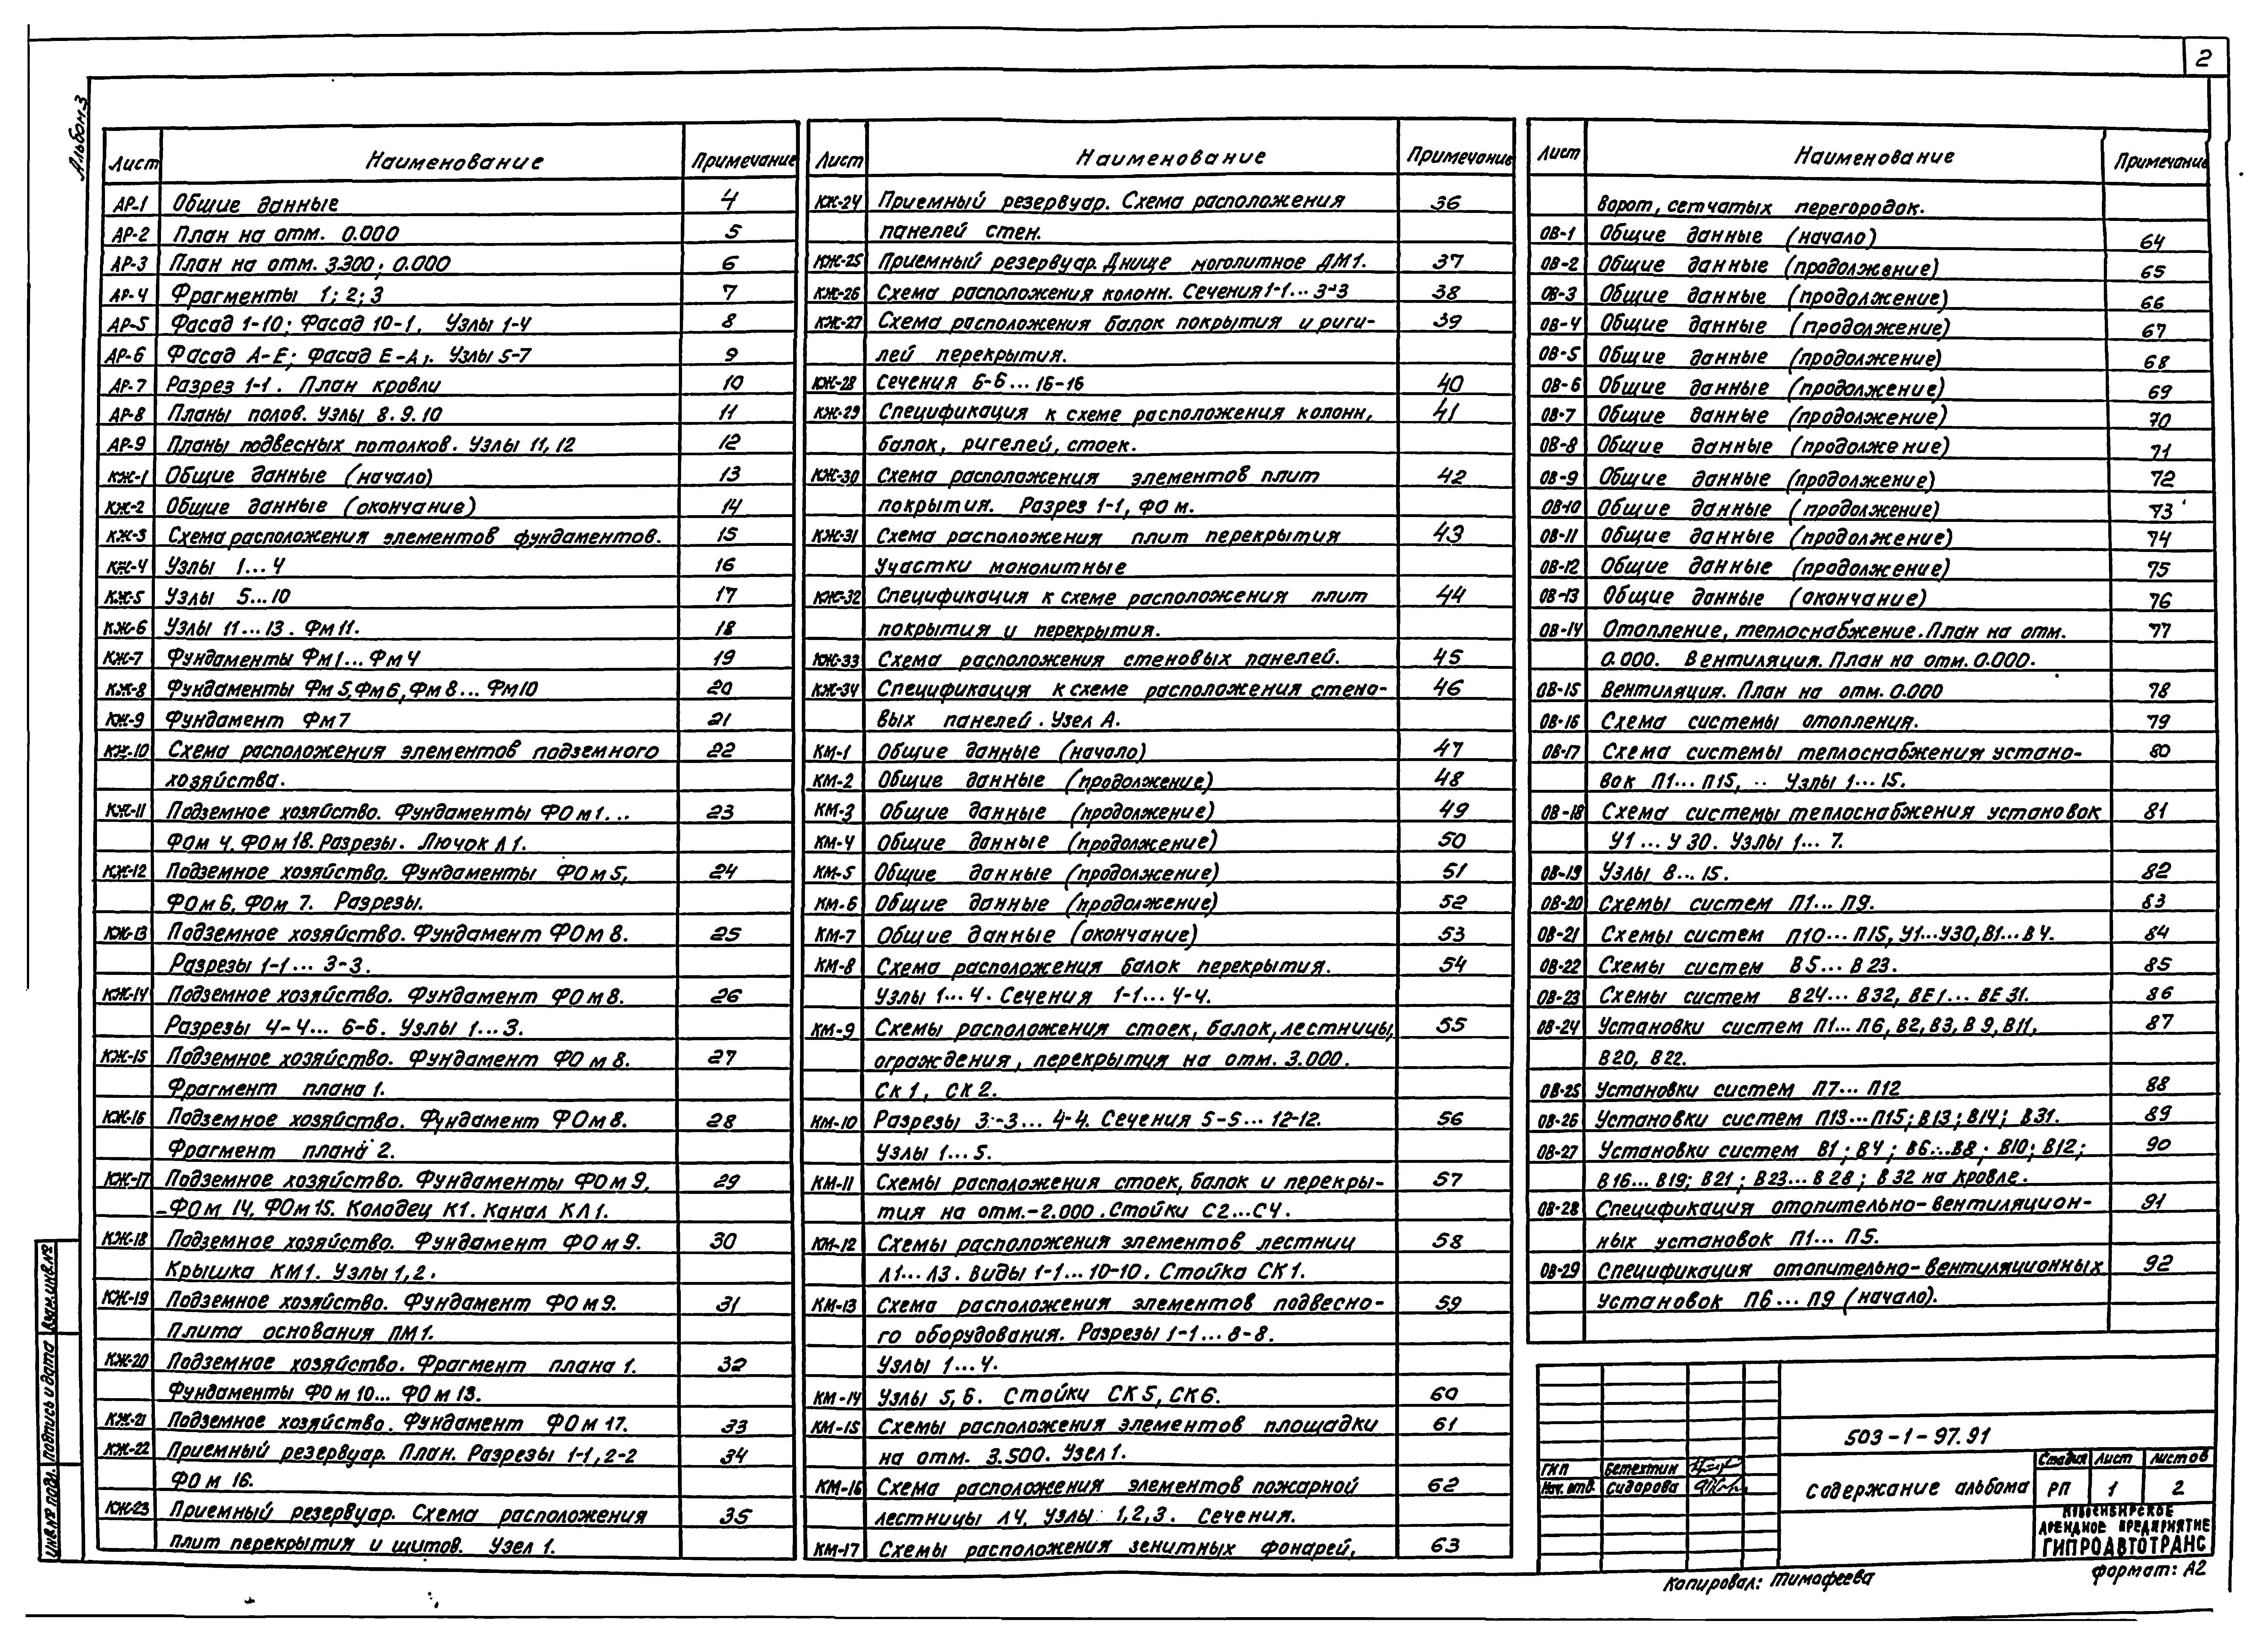 2
Альбом 3
Лист Наименование Примечание
АР-1 Общие данные 4
АР-2 План на отм. 0.000 5
АР-3 План на отм. 3.300; 0.000 6
АР-4 Фрагменты 1; 2; 3 7
АР-5 Фасад 1-10; Фасад 10-1, Узлы 1-4 8
АР-6 Фасад А-Е; Фасад Е-А; Узлы 5-7 9
АР-7 Разрез 1-1. План кровли 10
АР-8 Планы полов. Узлы 8.9.10 11
АР-9 Планы подвесных потолков. Узлы 11, 12 12
КЖ-1 Общие данные (начало) 13
КЖ-2 Общие данные (окончание) 14
КЖ-3 Схема расположения элементов фундаментов. 15
КЖ-4 Узлы 1...4 16
КЖ-5 Узлы 5...10 17
КЖ-6 Узлы 11...13. Фм 11. 18
КЖ-7 Фундаменты Фм1... Фм4 19
КЖ-8 Фундаменты Фм5, Фм6, Фм8... Фм10 20
КЖ-9 Фундамент Фм7 21
КЖ-10 Схема расположения элементов подземного 22
хозяйства.
КЖ-11 Подземное хозяйство. Фундаменты ФОм1... 23
ФОм 4, ФОм 18. Разрезы. Лючок Л1.
КЖ-12 Подземное хозяйство. Фундаменты ФОм5, 24
ФОм6, ФОм 7. Разрезы.
КЖ-13 Подземное хозяйство. Фундамент ФОм 8. 25
Разрезы 1-1... 3-3.
КЖ-14 Подземное хозяйство. Фундамент ФОм8. 26
Разрезы 4-4... 6-6. Узлы 1...3.
КЖ-15 Подземное хозяйство. Фундамент ФОм 8. 27
Фрагмент плана 1.
КЖ-16 Подземное хозяйство. Фундамент ФОм8. 28
Фрагмент плана 2.
КЖ-17 Подземное хозяйство. Фундаменты ФОм9, 29
ФОм 14, ФОм15. Колодец К1. Канал КЛ1.
КЖ-18 Подземное хозяйство. Фундамент ФОм9. 30
Крышка КМ1. Узлы 1,2.
КЖ-19 Подземное хозяйство. Фундамент ФОм9. 31
Плита основания ПМ1.
КЖ-20 Подземное хозяйство. Фрагмент плана 1. 32
Фундаменты ФОм 10... ФОм 13.
КЖ-21 Подземное хозяйство. Фундамент ФОм 17. 33
КЖ-22 Приемный резервуар. План. Разрезы 1-1, 2-2 34
ФОм 16.
КЖ-23 Приемный резервуар. Схема расположения 35
плит перекрытия и щитов. Узел 1.
Лист Наименование Примечание
КЖ-24 Приемный резервуар. Схема расположения 36
панелей стен.
КЖ-25 Приемный резервуар. Днище моголитное ДМ1. 37
КЖ-26 Схема расположения колонн. Сечения 1-1... 3-3 38
КЖ-27 Схема расположения балок покрытия и риге- 39
лей перекрытия.
КЖ-28 Сечения 6-6... 16-16 40
КЖ-29 Спецификация к схеме расположения колонн, 41
балок, ригелей, стоек.
КЖ-30 Схема расположения элементов плит 42
покрытия. Разрез 1-1, ФОм.
КЖ-31 Схема расположения плит перекрытия 43
Участки монолитные
КЖ-32 Спецификация к схеме расположения плит 44
покрытия и перекрытия.
КЖ-33 Схема расположения стеновых панелей. 45
КЖ-34 Спецификация к схеме расположения стено- 46
вых панелей. Узел А.
КМ-1 Общие данные (начало) 47
КМ-2 Общие данные (продолжение) 48
КМ-3 Общие данные (продолжение) 49
КМ-4 Общие данные (продолжение) 50
КМ-5 Общие данные (продолжение) 51
КМ-6 Общие данные (продолжение) 52
КМ-7 Общие данные (окончание) 53
КМ-8 Схема расположения балок перекрытия. 54
Узлы 1...4. Сечения 1-1... 4-4.
КМ-9 Схемы расположения стоек, балок, лестницы, 55
ограждения, перекрытия на отм. 3.000.
Ск 1, СК 2.
КМ-10 Разрезы 3-3... 4-4. Сечения 5-5... 12-12. 56
Узлы 1...5.
КМ-11 Схемы расположения стоек, балок и перекры- 57
тия на отм. -2.000. Стойки С2...С4.
КМ-12 Схемы расположения элементов лестниц 58
Л1... Л3. Виды 1-1... 10-10. Стойка СК 1.
КМ-13 Схема расположения элементов подвесно- 59
го оборудования. Разрезы 1-1... 8-8.
Узлы 1...4.
КМ-14 Узлы 5, 6. Стойки СК 5, СК6. 60
КМ-15 Схемы расположения элементов площадки 61
на отм. 3.500. Узел 1.
КМ-16 Схема расположения элементов пожарной 62
лестницы Л4. Узлы 1, 2, 3. Сечения.
КМ-17 Схемы расположения зенитных фонарей, 63
Лист Наименование Примечание
ворот, сетчатых перегородок.
ОВ-1 Общие данные (начало) 64
ОВ-2 Общие данные (продолжение) 65
ОВ-3 Общие данные (продолжение) 66
ОВ-4 Общие данные (продолжение) 67
ОВ-5 Общие данные (продолжение) 68
ОВ-6 Общие данные (продолжение) 69
ОВ-7 Общие данные (продолжение) 70
ОВ-8 Общие данные (продолжение) 71
ОВ-9 Общие данные (продолжение) 72
ОВ-10 Общие данные (продолжение) 73
ОВ-11 Общие данные (продолжение) 74
ОВ-12 Общие данные (продолжение) 75
ОВ-13 Общие данные (окончание) 76
ОВ-14 Отопление, теплоснабжение. План на отм. 77
0.000. Вентиляция. План на отм. 0.000.
ОВ-15 Вентиляция. План на отм. 0.000 78
ОВ-16 Схема системы отопления. 79
ОВ-17 Схема системы теплоснабжения устано- 80
вок П1... П15, .. Узлы 1...15.
ОВ-18 Схема системы теплоснабжения установок 81
У1... У 30. Узлы 1... 7.
ОВ-19 Узлы 8...15. 82
ОВ-20 Схемы систем П1... П9. 83
ОВ-21 Схемы систем П10... П15, У1...У30, В1...В4. 84
ОВ-22 Схемы систем В5... В23. 85
ОВ-23 Схемы систем В24... В32, ВЕ1... ВЕ31. 86
ОВ-24 Установки систем П1... П6, В2, В3, В9, В11, 87
В20, В22.
ОВ-25 Установки систем П7... П12 88
ОВ-26 Установки систем П13...П15; В13; В14; В31. 89
ОВ-27 Установки систем В1; В4; В6...В8; В10; В12; 90
В16... В19; В21; В23... В28; В32 на кровле.
ОВ-28 Спецификация отопительно-вентиляцион- 91
ных установок П1... П5.
ОВ-29 Спецификация отопительно-вентиляционных 92
установок П6... П9 (начало).
503-1-97.91
ГИП Бетехтин
Нач. отд. Сидорова
Содержание альбома
Стадия Лист Листов
РП 1 2
НОВОСИБИРСКОЕ
АРЕНДНОЕ ПРЕДПРИЯТИЕ
ГИПРОАВТОТРАНС
Копировал: Тимофеева
Формат: А2
Инв.№ подл. Подпись и дата Взам.инв.№